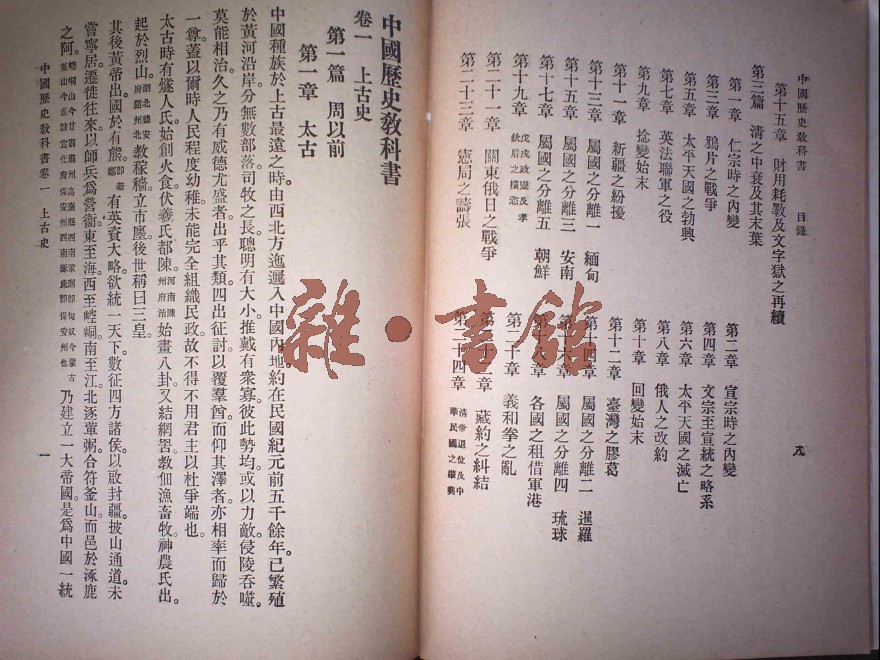 中國歷史教科書 目錄
第十五章 財用耗斁及文字獄之再續
第三篇 清之中衰及其末葉
第一章 仁宗時之內變
第二章 宣宗時之內變
第三章 鴉片之戰爭
第四章 文宗至宣統之略系
第五章 太平天國之勃興
第六章 太平天國之滅亡
第七章 英法聯軍之役
第八章 俄人之改約
第九章 捻變始末
第十章 回變始末
第十一章 新疆之紛擾
第十二章 臺灣之膠葛
第十三章 屬國之分離一 緬甸
第十四章 屬國之分離二 暹羅
第十五章 屬國之分離三 安南
第十六章 屬國之分離四 琉球
第十七章 屬國之分離五 朝鮮
第十八章 各國之租借軍港
第十九章 戊戌政變及孝欽后之橫恣
第二十章 義和拳之亂
第二十一章 關東俄日之戰爭
第二十二章 藏約之糾結
第二十三章 憲局之譸張
第二十四章 清帝退位及中華民國之肇興
八
中國歷史教科書
卷一 上古史
第一篇 周以前
第一章 太古
中國種族於上古最遠之時。由西北方迤邐入中國內地。約在民國紀元前五千餘年。已繁殖
於黃河沿岸。分無數部落。司牧之長。聰明有大小。推戴有衆寡。彼此勢均。或以力敵。侵陵吞噬。
莫能相治。久之乃有威德尤盛者。出乎其類。四出征討。以覆羣酋。而仰其澤者。亦相率而歸於
一尊。蓋以爾時人民程度幼稚。未能完全組織民政。故不得不用君主以杜爭端也。
太古時有燧人氏。始創火食。伏羲氏都陳。河南陳州府治始畫八卦。又結網罟。教佃漁畜牧。神農氏出。
起於烈山。湖北德安府隨州北教稼穡。立市廛。後世稱曰三皇。
其後黃帝出國於有熊。卽新鄭有英資大略。欲統一天下。數征四方諸侯。以啟封疆。披山通道。未
嘗寧居。遷徙往來。以師兵爲營衞。東至海。西至崆峒。南至江。北逐葷粥。合符釜山。而邑於涿鹿
之阿。崆峒山今甘肅肅州高臺縣西南葷粥卽匈奴今蒙古釜山今直隸宣化府保安州西南涿鹿卽保安州也乃建立一大帝國。是爲中國一統
中國歷史教科書卷一 上古史
一
雜·書館